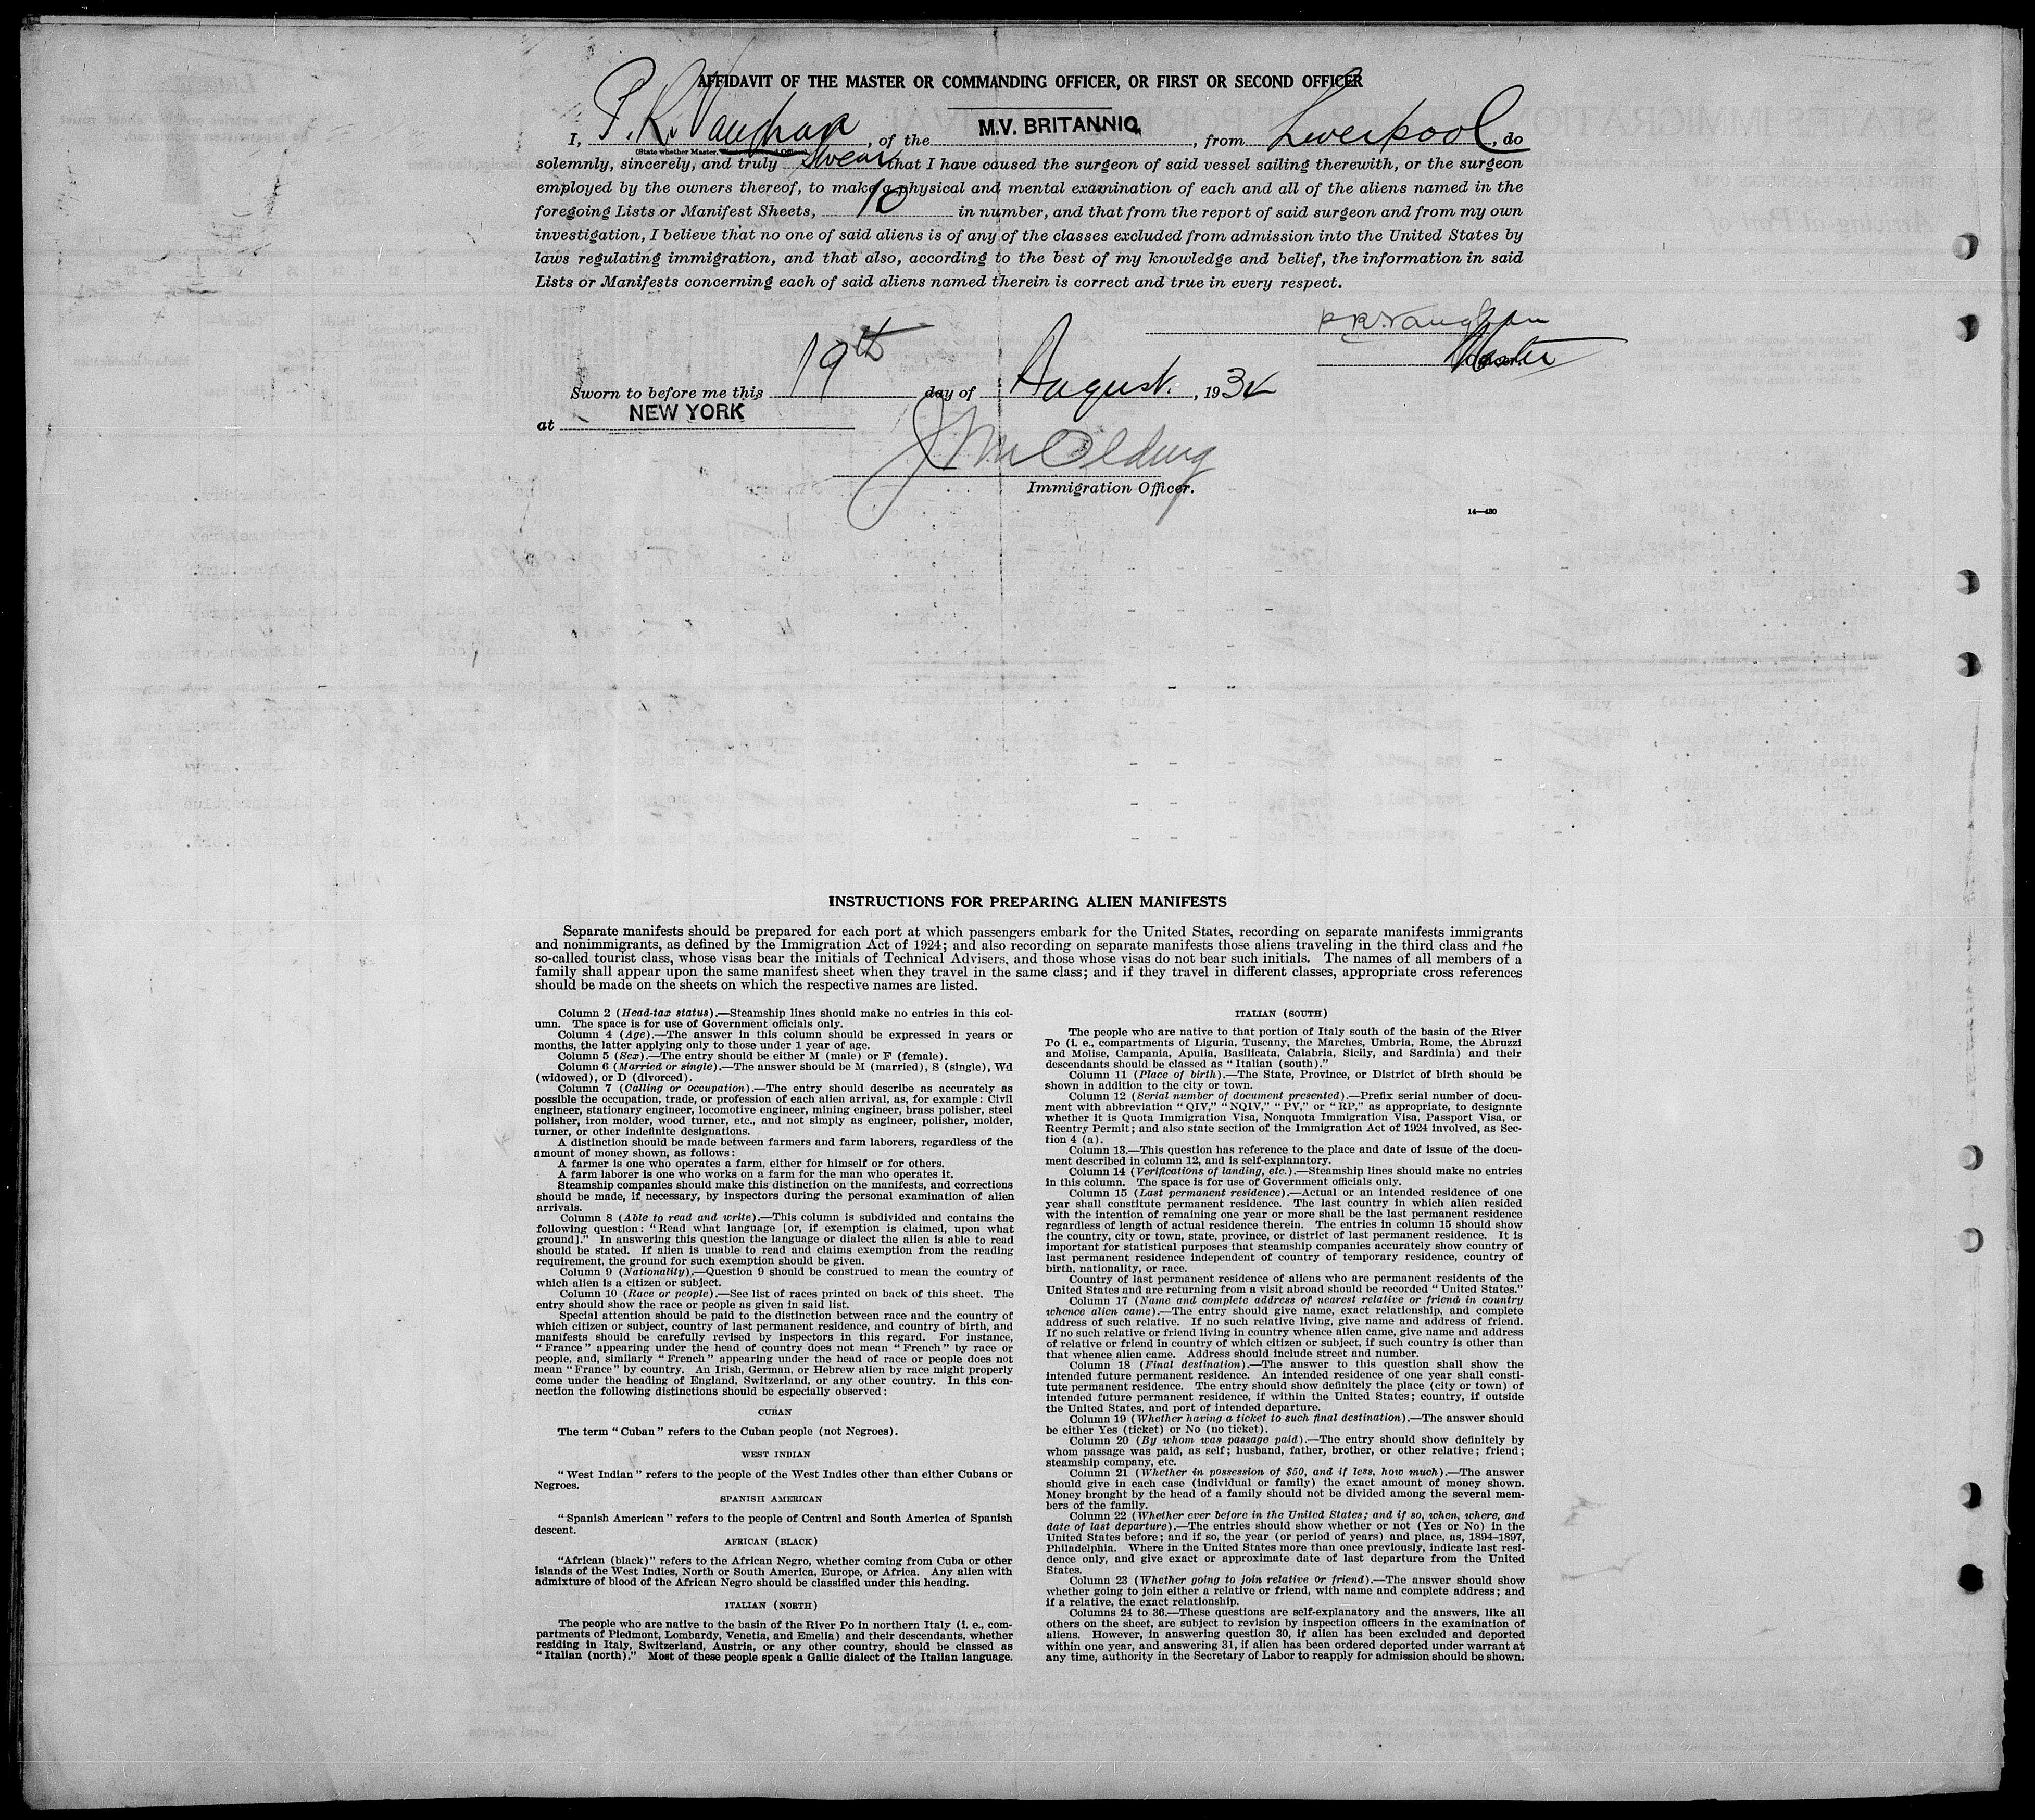 AFFIDAVIT OF THE MASTER OR COMMANDING OFFICER, OR FIRST OR SECOND OFFICER
I, P. R. Vaughan, of the M.V. BRITANNIC, from Liverpool, do
(State whether Master, First or Second Officer)
solemnly, sincerely, and truly swear that I have caused the surgeon of said vessel sailing therewith, or the surgeon
employed by the owners thereof, to make a physical and mental examination of each and all of the aliens named in the
foregoing Lists or Manifest Sheets, 10 in number, and that from the report of said surgeon and from my own
investigation, I believe that no one of said aliens is of any of the classes excluded from admission into the United States by
laws regulating immigration, and that also, according to the best of my knowledge and belief, the information in said
Lists or Manifests concerning each of said aliens named therein is correct and true in every respect.
P R Vaughan
Master
Sworn to before me this 19th day of August, 193
at NEW YORK
Immigration Officer.
14—430
INSTRUCTIONS FOR PREPARING ALIEN MANIFESTS
Separate manifests should be prepared for each port at which passengers embark for the United States, recording on separate manifests immigrants
and nonimmigrants, as defined by the Immigration Act of 1924; and also recording on separate manifests those aliens traveling in the third class and the
so-called tourist class, whose visas bear the initials of Technical Advisers, and those whose visas do not bear such initials. The names of all members of a
family shall appear upon the same manifest sheet when they travel in the same class; and if they travel in different classes, appropriate cross references
should be made on the sheets on which the respective names are listed.
Column 2 (Head-tax status).—Steamship lines should make no entries in this col-
umn. The space is for use of Government officials only.
Column 4 (Age).—The answer in this column should be expressed in years or
months, the latter applying only to those under 1 year of age.
Column 5 (Sex).—The entry should be either M (male) or F (female).
Column 6 (Married or single).—The answer should be M (married), S (single), Wd
(widowed), or D (divorced).
Column 7 (Calling or occupation).—The entry should describe as accurately as
possible the occupation, trade, or profession of each alien arrival, as, for example: Civil
engineer, stationary engineer, locomotive engineer, mining engineer, brass polisher, steel
polisher, iron molder, wood turner, etc., and not simply as engineer, polisher, molder,
turner, or other indefinite designations.
A distinction should be made between farmers and farm laborers, regardless of the
amount of money shown, as follows:
A farmer is one who operates a farm, either for himself or for others.
A farm laborer is one who works on a farm for the man who operates it.
Steamship companies should make this distinction on the manifests, and corrections
should be made, if necessary, by inspectors during the personal examination of alien
arrivals.
Column 8 (Able to read and write).—This column is subdivided and contains the
following question: "Read what language [or, if exemption is claimed, upon what
ground]." In answering this question the language or dialect the alien is able to read
should be stated. If alien is unable to read and claims exemption from the reading
requirement, the ground for such exemption should be given.
Column 9 (Nationality).—Question 9 should be construed to mean the country of
which alien is a citizen or subject.
Column 10 (Race or people).—See list of races printed on back of this sheet. The
entry should show the race or people as given in said list.
Special attention should be paid to the distinction between race and the country of
which citizen or subject, country of last permanent residence, and country of birth, and
manifests should be carefully revised by inspectors in this regard. For instance,
"France" appearing under the head of country does not mean "French" by race or
people, and, similarly "French" appearing under the head of race or people does not
mean "France" by country. An Irish, German, or Hebrew alien by race might properly
come under the heading of England, Switzerland, or any other country. In this con-
nection the following distinctions should be especially observed:
CUBAN
The term "Cuban" refers to the Cuban people (not Negroes).
WEST INDIAN
"West Indian" refers to the people of the West Indies other than either Cubans or
Negroes.
SPANISH AMERICAN
"Spanish American" refers to the people of Central and South America of Spanish
descent.
AFRICAN (BLACK)
"African (black)" refers to the African Negro, whether coming from Cuba or other
islands of the West Indies, North or South America, Europe, or Africa. Any alien with
admixture of blood of the African Negro should be classified under this heading.
ITALIAN (NORTH)
The people who are native to the basin of the River Po in northern Italy (i. e., com-
partments of Piedmont, Lombardy, Venetia, and Emelia) and their descendants, whether
residing in Italy, Switzerland, Austria, or any other country, should be classed as
"Italian (north)." Most of these people speak a Gallic dialect of the Italian language.
ITALIAN (SOUTH)
The people who are native to that portion of Italy south of the basin of the River
Po (i. e., compartments of Liguria, Tuscany, the Marches, Umbria, Rome, the Abruzzi
and Molise, Campania, Apulia, Basilicata, Calabria, Sicily, and Sardinia) and their
descendants should be classed as "Italian (south)."
Column 11 (Place of birth).—The State, Province, or District of birth should be
shown in addition to the city or town.
Column 12 (Serial number of document presented).—Prefix serial number of docu-
ment with abbreviation "QIV," "NQIV," "PV," or "RP," as appropriate, to designate
whether it is Quota Immigration Visa, Nonquota Immigration Visa, Passport Visa, or
Reentry Permit; and also state section of the Immigration Act of 1924 involved, as Sec-
tion 4 (a).
Column 13.—This question has reference to the place and date of issue of the docu-
ment described in column 12, and is self-explanatory.
Column 14 (Verifications of landing, etc.).—Steamship lines should make no entries
in this column. The space is for use of Government officials only.
Column 15 (Last permanent residence).—Actual or an intended residence of one
year shall constitute permanent residence. The last country in which alien resided
with the intention of remaining one year or more shall be the last permanent residence
regardless of length of actual residence therein. The entries in column 15 should show
the country, city or town, state, province, or district of last permanent residence. It is
important for statistical purposes that steamship companies accurately show country of
last permanent residence independent of country of temporary residence, country of
birth, nationality, or race.
Country of last permanent residence of aliens who are permanent residents of the
United States and are returning from a visit abroad should be recorded "United States."
Column 17 (Name and complete address of nearest relative or friend in country
whence alien came).—The entry should give name, exact relationship, and complete
address of such relative. If no such relative living, give name and address of friend.
If no such relative or friend living in country whence alien came, give name and address
of relative or friend in country of which citizen or subject, if such country is other than
that whence alien came. Address should include street and number.
Column 18 (Final destination).—The answer to this question shall show the
intended future permanent residence. An intended residence of one year shall consti-
tute permanent residence. The entry should show definitely the place (city or town) of
intended future permanent residence, if within the United States; country, if outside
the United States, and port of intended departure.
Column 19 (Whether having a ticket to such final destination).—The answer should
be either Yes (ticket) or No (no ticket).
Column 20 (By whom was passage paid).—The entry should show definitely by
whom passage was paid, as self; husband, father, brother, or other relative; friend;
steamship company, etc.
Column 21 (Whether in possession of $50, and if less, how much).—The answer
should give in each case (individual or family) the exact amount of money shown.
Money brought by the head of a family should not be divided among the several mem-
bers of the family.
Column 22 (Whether ever before in the United States; and if so, when, where, and
date of last departure).—The entries should show whether or not (Yes or No) in the
United States before; and if so, the year (or period of years) and place, as, 1894–1897,
Philadelphia. Where in the United States more than once previously, indicate last resi-
dence only, and give exact or approximate date of last departure from the United
States.
Column 23 (Whether going to join relative or friend).—The answer should show
whether going to join either a relative or friend, with name and complete address; and
if a relative, the exact relationship.
Columns 24 to 36.—These questions are self-explanatory and the answers, like all
others on the sheet, are subject to revision by inspection officers in the examination of
aliens. However, in answering question 30, if alien has been excluded and deported
within one year, and answering 31, if alien has been ordered deported under warrant at
any time, authority in the Secretary of Labor to reapply for admission should be shown.